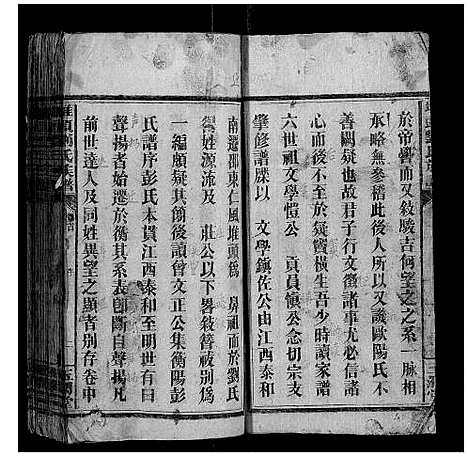 於帝嚳而又敘駿吉何望之之系一脈相
承略無參稽此後人所以又譏歐陽氏不
善闕疑也故君子行文徵諸事尤必信諸
心而後不至於疑竇橫生吾少時讀家譜
六世祖文學愷公 貢員慎公念切宗支
肇修譜牒以 文學鎮佐公由江西泰和
南遷邵東仁風堆頭為 鼻祖而於劉氏
得姓源流及 莊公以下畧敘簪祓別為
一編頗疑其飾後讀曾文正公集衡陽彭
氏譜序彭氏本貫江西泰和至明世有曰
聲揚者始遷於衡其系表卽斷自聲揚凡
前世達人及同姓異望之顯者別存卷中